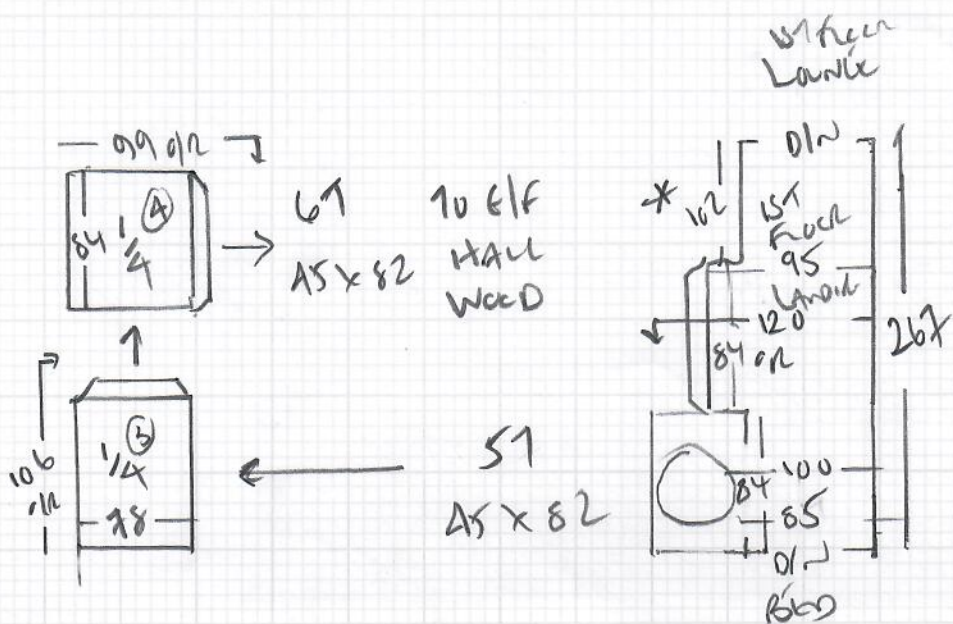 1ST FLOOR
LOUNGE
99 O/R
D/N
84
1/4
4
6T
45 x 82
TO E/F
HALL
WOOD
*
102
1ST
FLOOR
95
LANDING
120
84
O/R
267
106
O/R
1/4
3
78
5T
45 x 82
84
100
85
D/N
BED